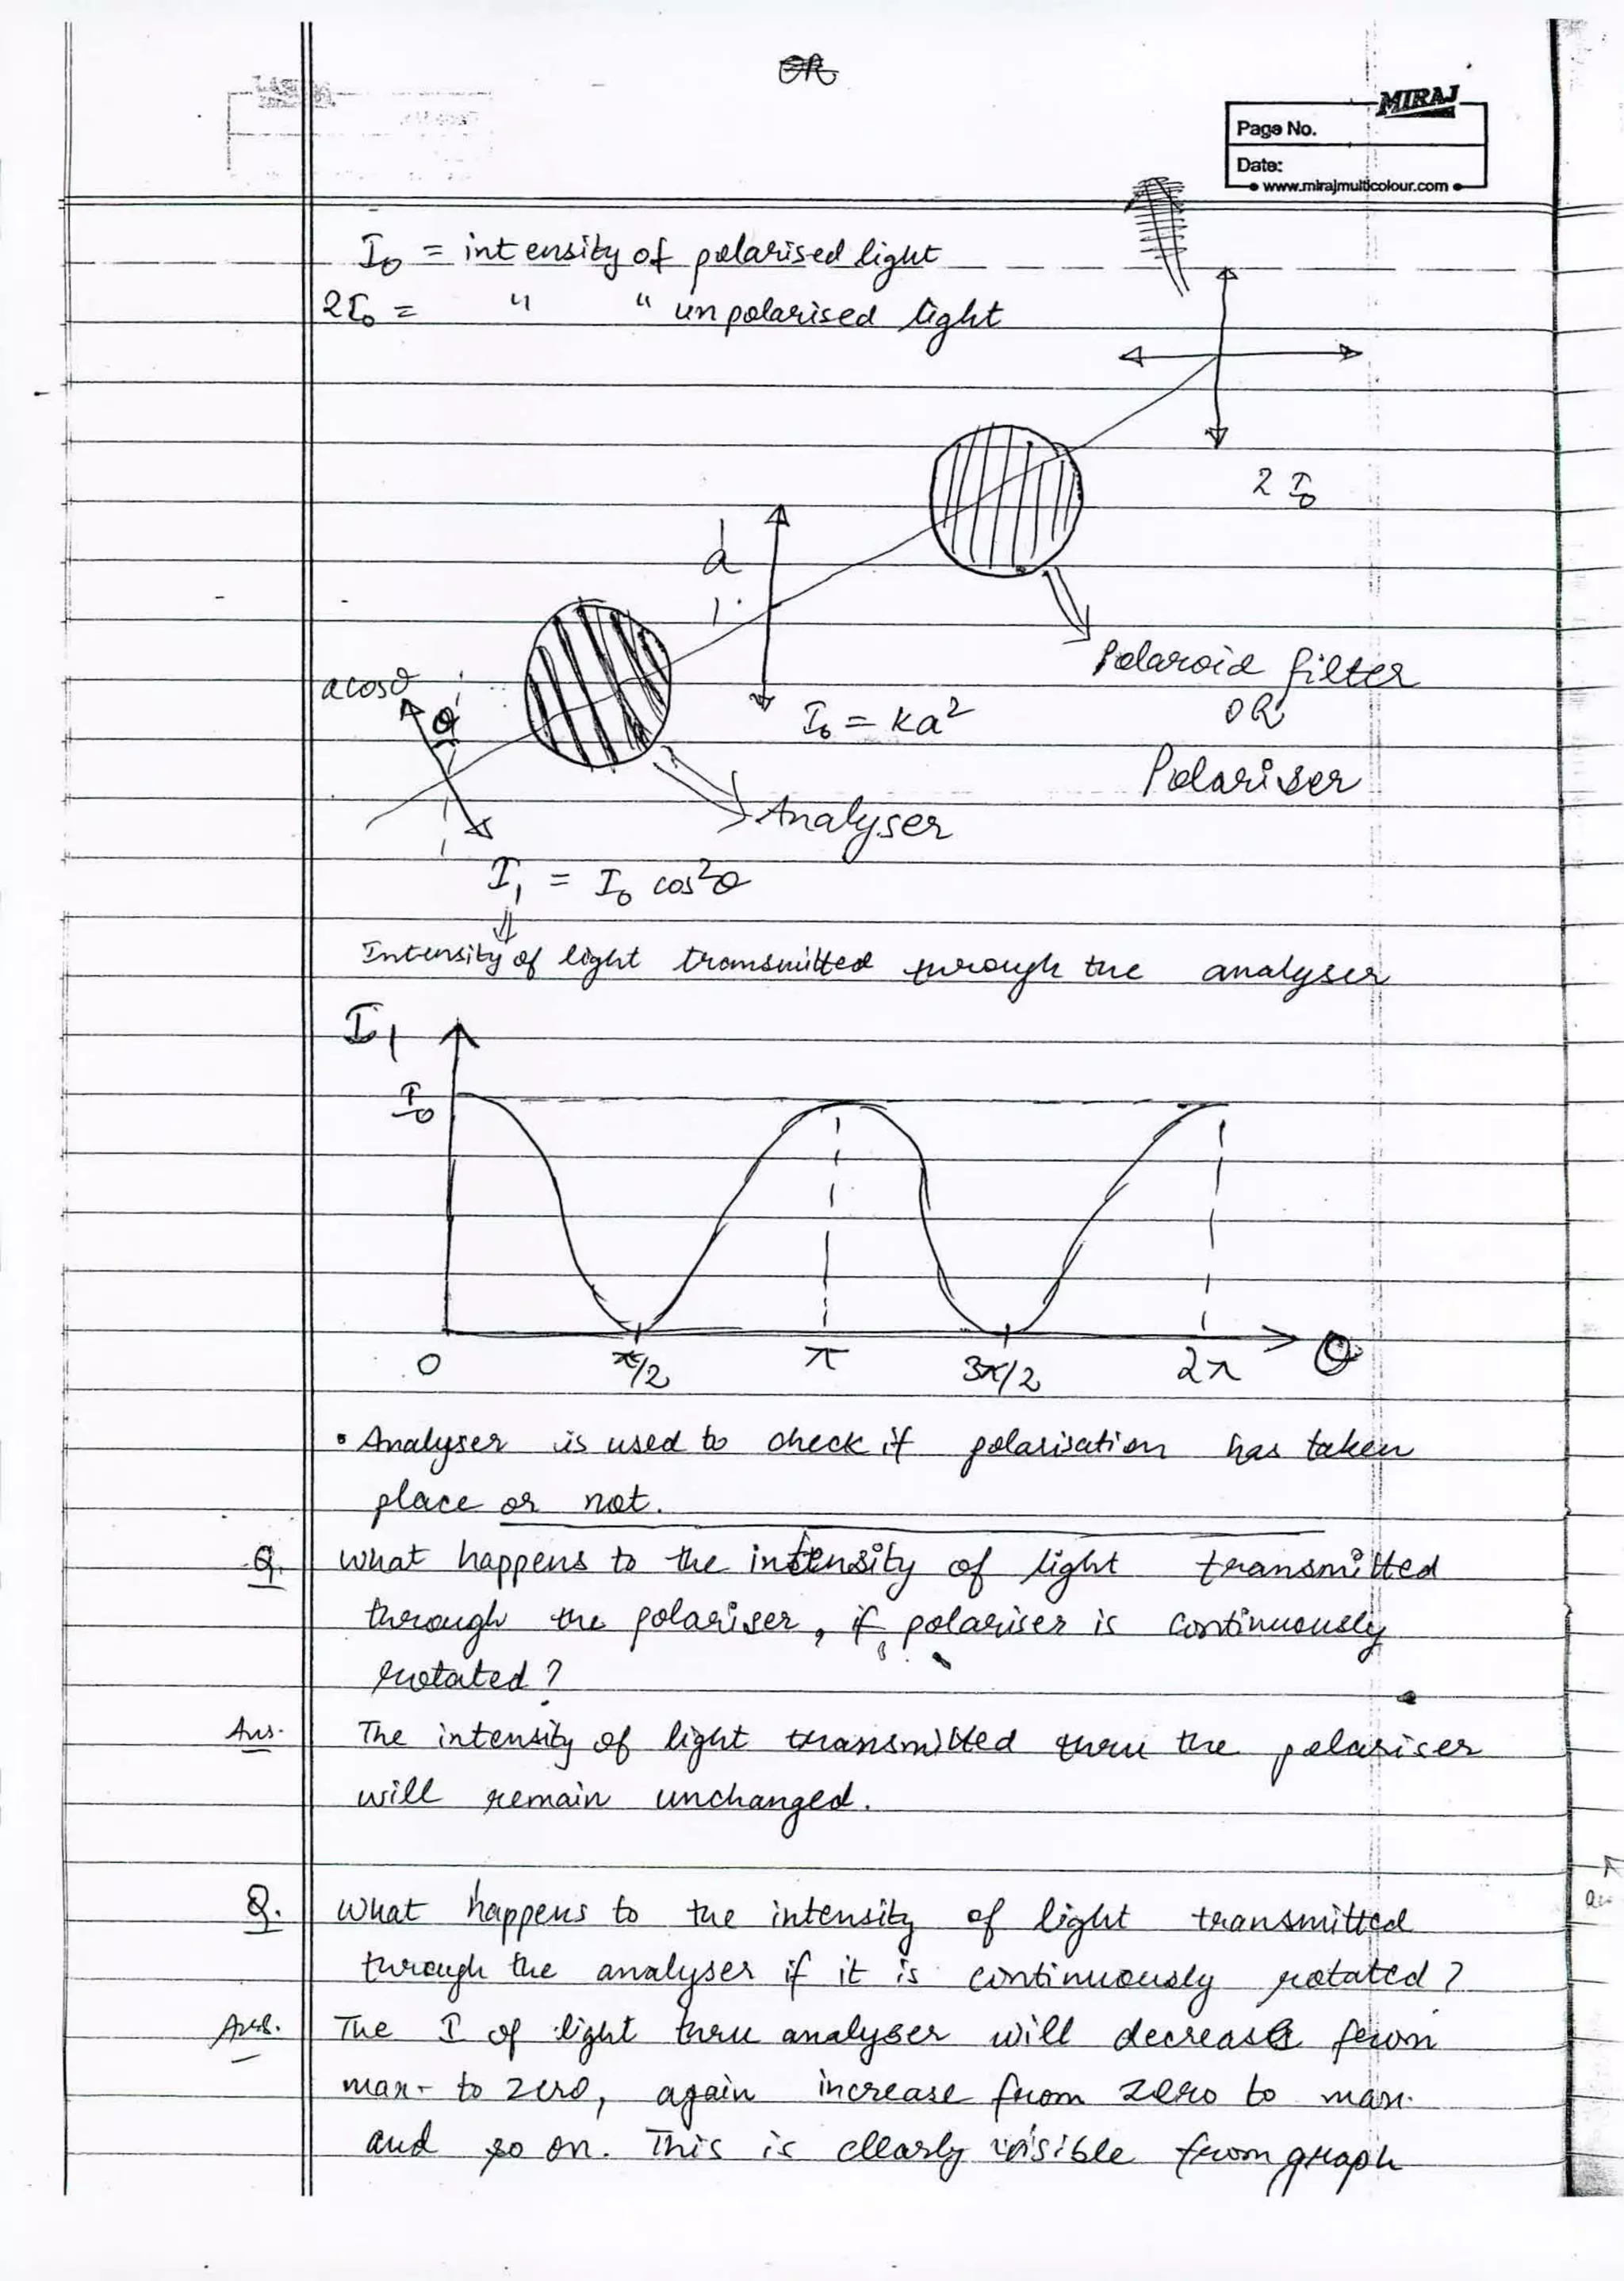 OR
MIRAJ
Page No.
Date:
• www.mirajmulticolour.com •
I₀ = intensity of polarised light
2I₀ = " " unpolarised light
2 I₀
a
Polaroid filter
OR
Polariser
I₀ = ka²
a cosθ
θ
Analyser
I₁ = I₀ cos²θ
⇓
Intensity of light transmitted through the analyser
I₁
I₀
0 π/2 π 3π/2 2π θ
• Analyser is used to check if polarisation has taken
place or not.
Q. What happens to the intensity of light transmitted
through the polariser, if polariser is continuously
rotated?
Ans. The intensity of light transmitted thru the polariser
will remain unchanged.
Q. What happens to the intensity of light transmitted
through the analyser if it is continuously rotated?
Ans. The I of light thru analyser will decrease from
max. to zero, again increase from zero to max.
and so on. This is clearly visible from graph